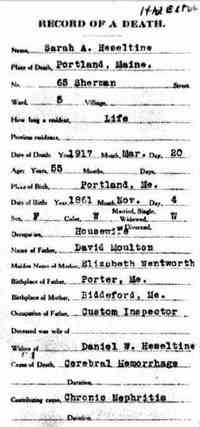 RECORD OF A DEATH.
Name, Sarah A. Heseltine
Place of Death, Portland, Maine.
No. 65 Sherman Street
Ward, 5 Village,
How long a resident, Life
Previous residence,
Date of Death: Year, 1917 Month, Mar. Day, 20
Age: Years, 55 Months, Days,
Place of Birth, Portland, Me.
Date of Birth: Year, 1861 Month, Nov. Day, 4
Married, Single,
Sex, F Color, W Widowed, W
or Divorced,
Occupation, Housewife
Name of Father, David Moulton
Maiden Name of Mother, Elizabeth Wentworth
Birthplace of Father, Porter, Me.
Birthplace of Mother, Biddeford, Me.
Occupation of Father, Custom Inspector
Deceased was wife of
Widow of Daniel W. Heseltine
Cause of Death, Cerebral Hemorrhage
Duration,
Contributing cause, Chronic Nephritis
Duration,